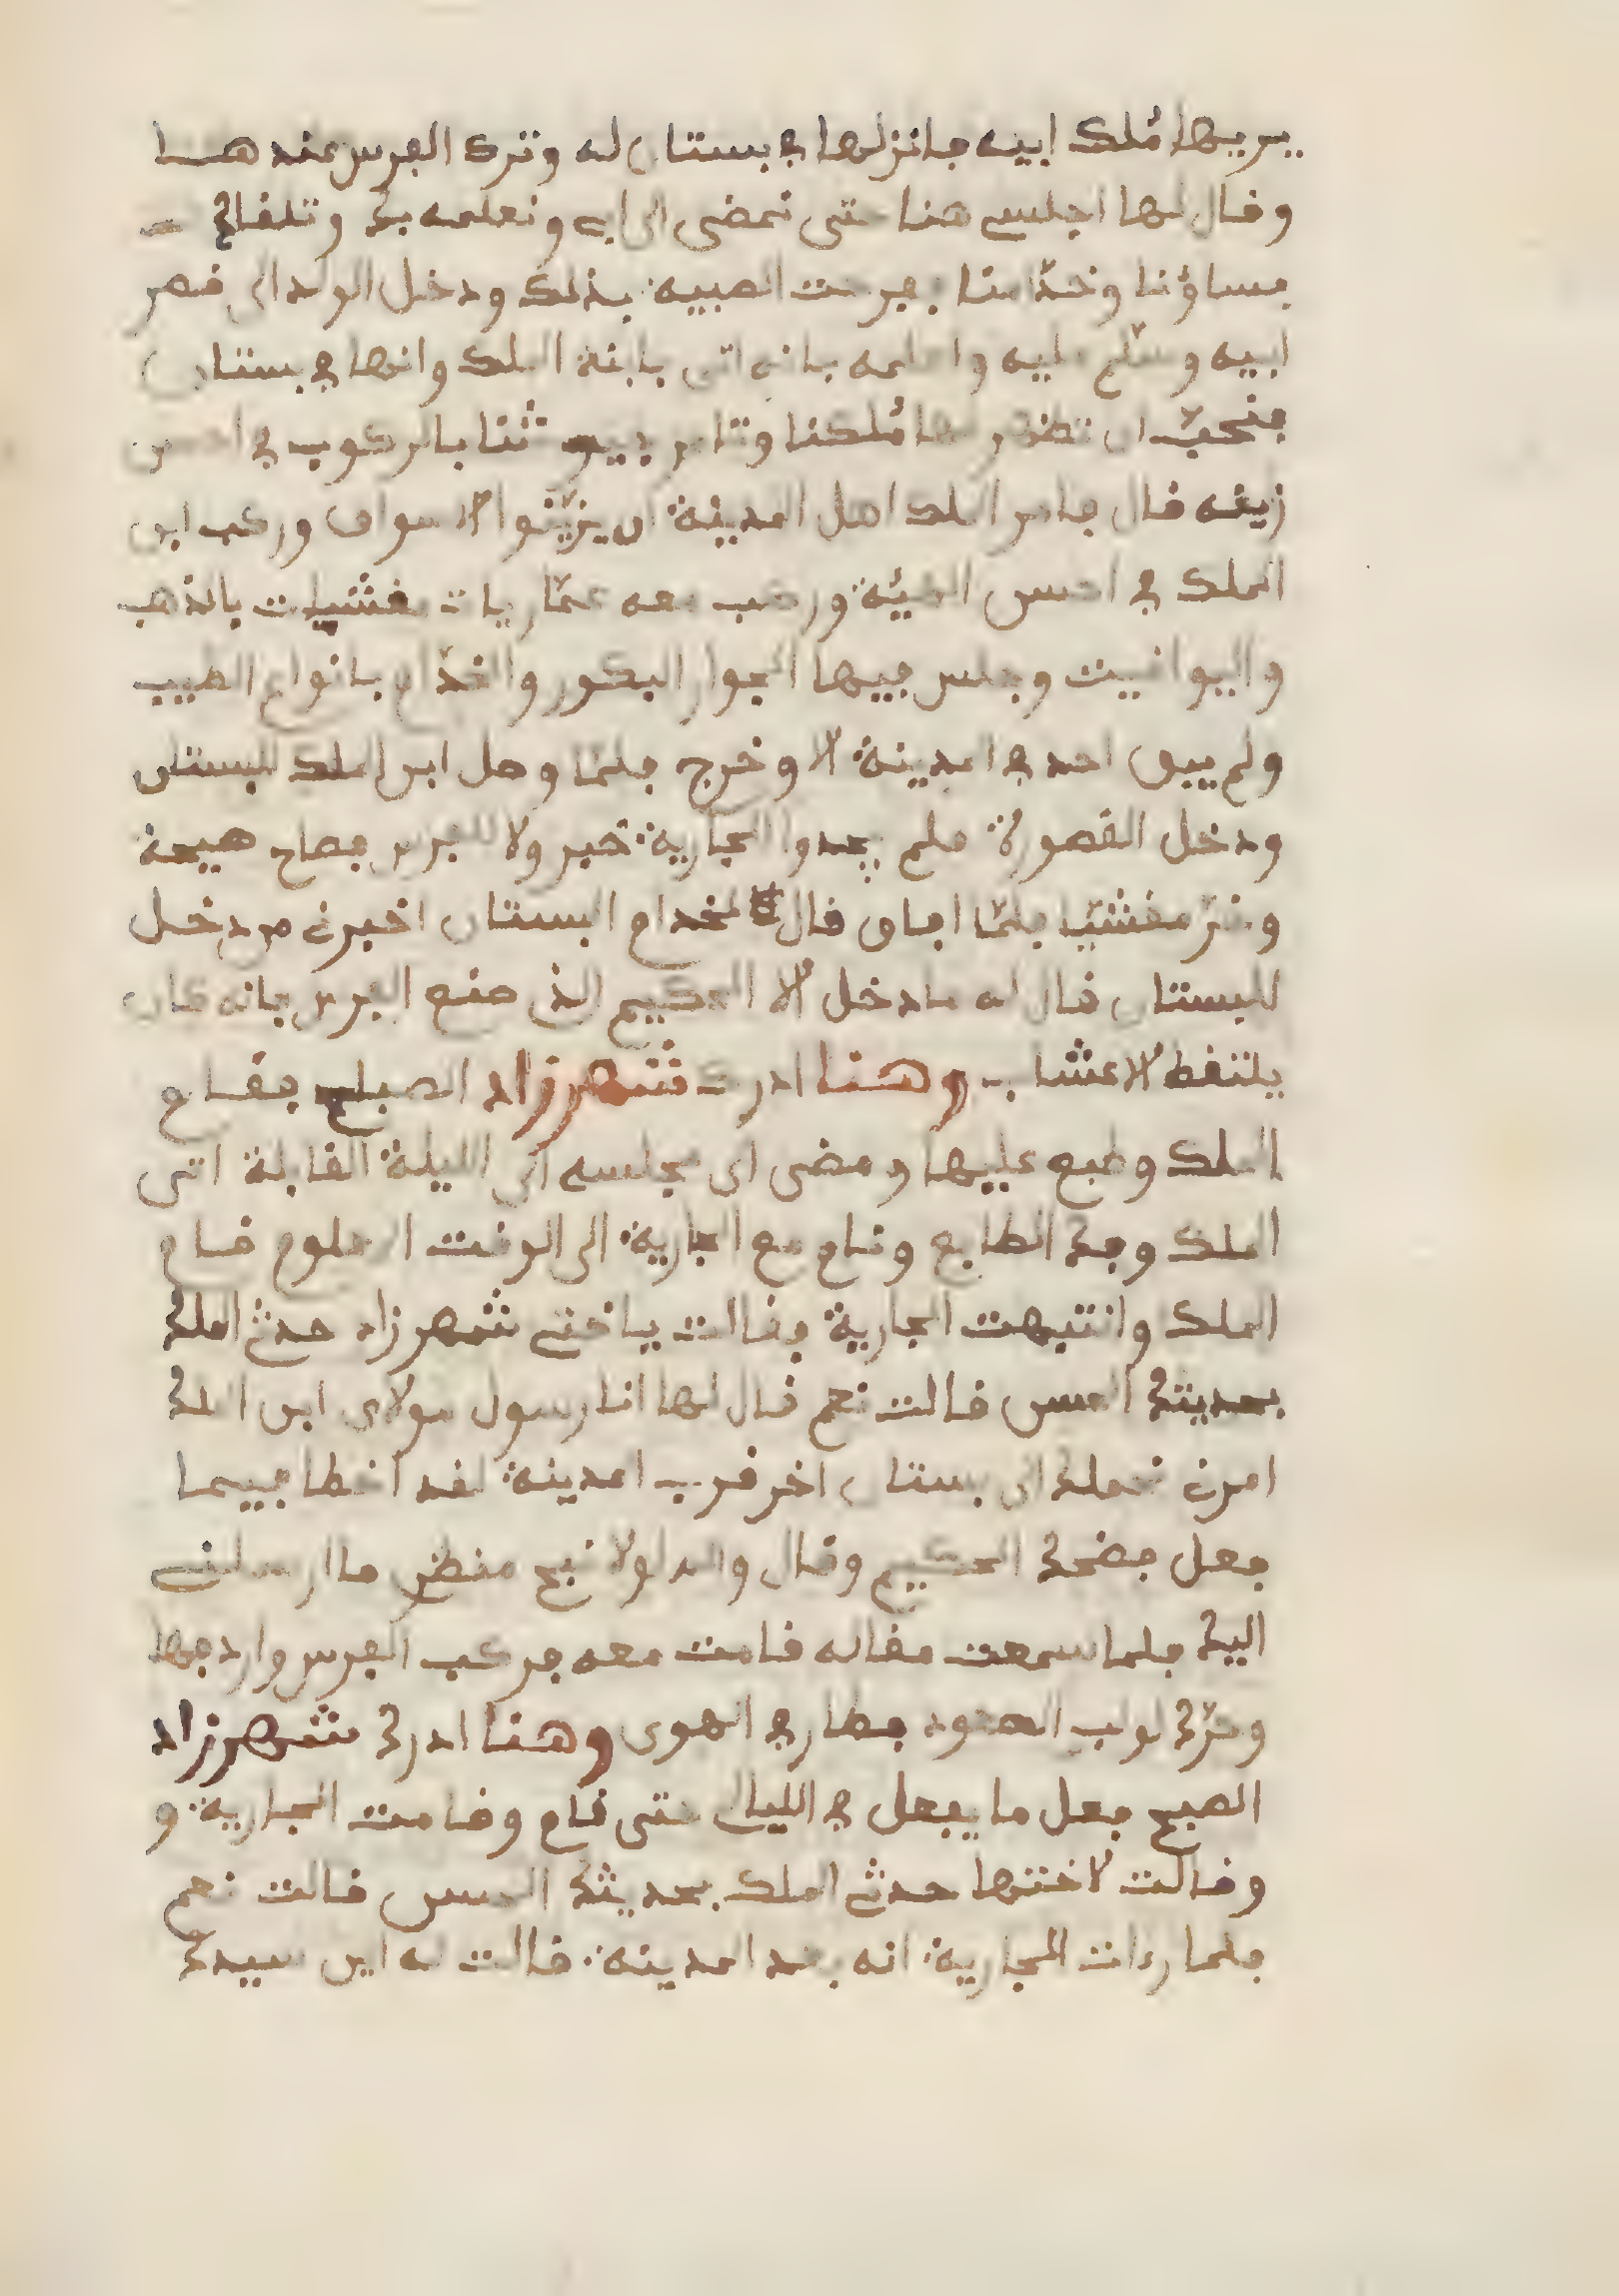 يريها مُلك ابيه فانزلها في بستان له وترك الفرس عندهـا
وقال لها اجلسي هنا حتى نمضي الى ابي ونعلمه بك وتلقاك
نساؤنا وخدّامنا ففرحت الصبيه بذلك ودخل الولد الى قصر
ابيه وسلّم عليه واعلمه بانه اتى بابنة الملك وانها في بستان
فنحبّ ان تظهر لها مُلكنا وتامر جيوشنا بالركوب في احسن
زينه قال فامر الملك اهل المدينة ان يزيّنوا الاسواق وركب ابن
الملك في احسن الهيئة وركب معه عمّاريات مغشيات بالذهب
واليواقيت وجلس فيها الجوار البكور والخدّام بانواع الطيب
ولم يبق احد في المدينة الا وخرج فلمّا وصل ابن الملك للبستان
ودخل القصورة فلم يجدوا الجارية خبر ولا للفرس فصاح صيحة
وخرّ مغشيّا فلمّا افاق قال لخدام البستان اخبرني من دخل
للبستان قال له ما دخل الا الحكيم الذي صنع الفرس فانه كان
يلتقط الاعشاب وهـنا ادرك شهرزاد الصباح فقـام
الملك وطبع عليها ومضى الى مجلسه الى الليلة القابلة اتى
الملك وفك الطابع ونام مع الجارية الى الوقت المعلوم قـام
الملك وانتبهت الجارية فقالت يا اختي شهرزاد حدث الملك
بحديثك الحسن قالت نعم قال لها انا رسول مولاي ابن الملك
امرني نحملك الى بستان اخر قرب المدينة لقد اخطا فيمـا
فعل فضحك الحكيم وقال والله لولا قبح منظري ما ارسلني
اليك فلما سمعت مقاله قامت معه فركب الفرس واردفها
وحرّك لولب الصعود فطار في الهوى وهـنا ادرك شهرزاد
الصبح فعل ما يفعل في الليالي حتى قام وقامت الجارية و
وقالت لاختها حدثي الملك بحديثك الحسن قالت نعم
فلما رءات الجارية انه بعد المدينة قالت له اين سيدك